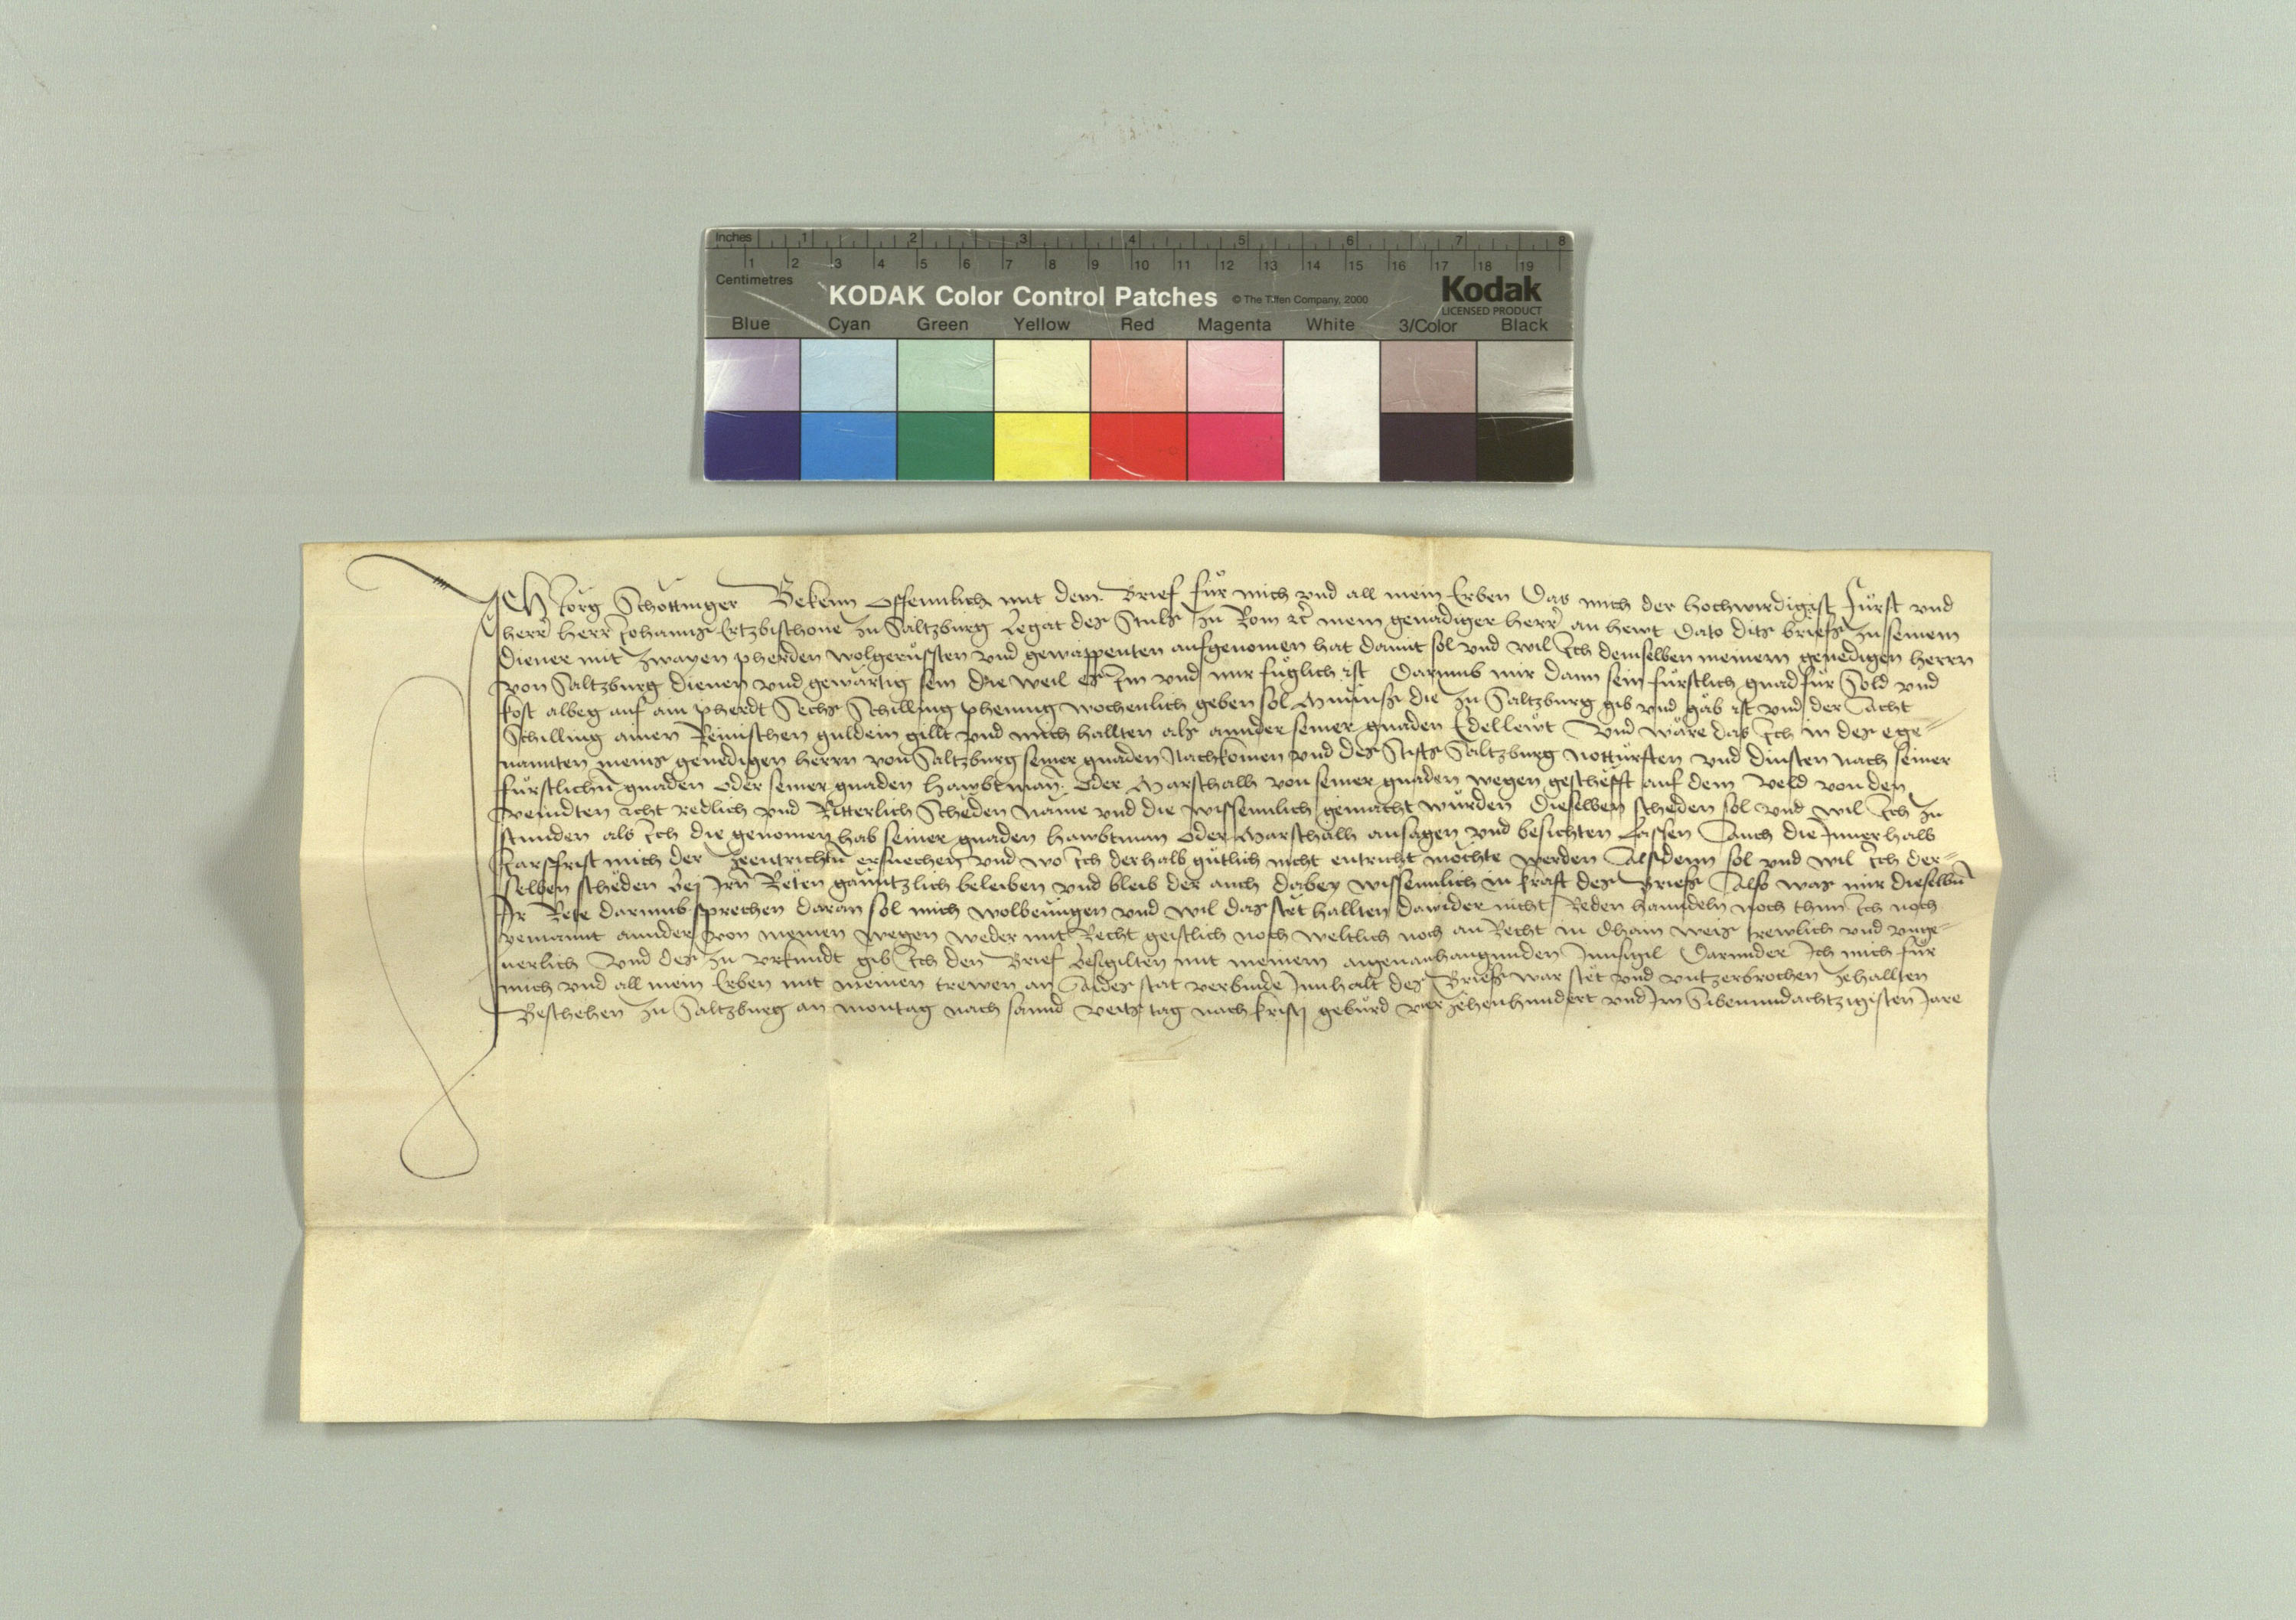 Inches 1 2 3 4 5 6 7 8
1 2 3 4 5 6 7 8 9 10 11 12 13 14 15 16 17 18 19
Centimetres
KODAK Color Control Patches © The Tiffen Company, 2000 Kodak
LICENSED PRODUCT
Blue Cyan Green Yellow Red Magenta White 3/Color Black
Ich Jörg Schöttinger Bekenn offennlich mit dem Brief für mich vnd all mein Erben Das mich der hochwirdigist Fürst vnd
herr herr Johanns Ertzbischoue zu Saltzburg Legat des Stuls zu Rom etc mein genadiger herr an hewt Dato dits briefs zu seinem
Diener mit zwayen pherden wolgerüssten vnd gewappenten aufgenomen hat damit sol vnd wil Ich demselben meinem genedigen herrn
von Saltzburg dienen vnd gewärtig sein die weil es Im vnd mir füglich ist Darumb mir dann sein fürstlich gnad für Sold vnd
kost albeg auf ain pherdt Sechs Schilling phening wochenlich geben sol Münnss die zu Saltzburg gib vnd gäb ist vnd der Acht
Schilling ainen Reinischen guldein gillt vnd mich hallten als annder seiner gnaden Edellewt Vnd wäre das Ich in des ege=
nannten meins genedigen herrn von Saltzburg seiner gnaden Nachkomen vnd des Stifts Saltzburg notturften vnd dinsten nach seiner
fürstlichn gnaden oder seiner gnaden hawbtman oder Marschalh von seiner gnaden wegen geschefft auf dem veld von den
veindten Acht redlich vnd Ritterlich Scheden näme vnd die wissennlich gemacht wurden Dieselben scheden sol vnd wil Ich zu
stunden als Ich die genomen hab seiner gnaden hawbtman oder Marschalh ansagen vnd besichten lassen Auch die Innerhalb
Jarsfrist mich der zeentrichtn ersuechen vnd wo Ich derhalb gutlich nicht entricht möchte werden Alsdenn sol vnd wil Ich der=
selben scheden bei Irn Reten gänntzlich beleiben vnd bleib der auch dabey wissennlich in kraft des Briefs Also was mir dieselbn
Ir Rete darumb sprechen daran sol mich wolbenügen vnd wil das stet hallten dawider nicht Reden hanndeln noch thun Ich noch
yemannt annder von meinen wegen weder mit Recht geistlich noch weltlich noch an Recht in dhain weis trewlich vnd vnge=
uerlich Vnd des zu vrkundt gib Ich den Brief besigilten mit meinem aigen anhangunden Innsigil Darunder Ich mich für
mich vnd all mein Erben mit meinen trewen an Aides stat verbinde Innhalt des Briefs war stet vnd vntzerbrochen zehallten
Beschehen zu Saltzburg an Montag nach sannd Veits tag nach kristi geburd vierzehenhundert vnd Im Sibenundachtzigisten Jare